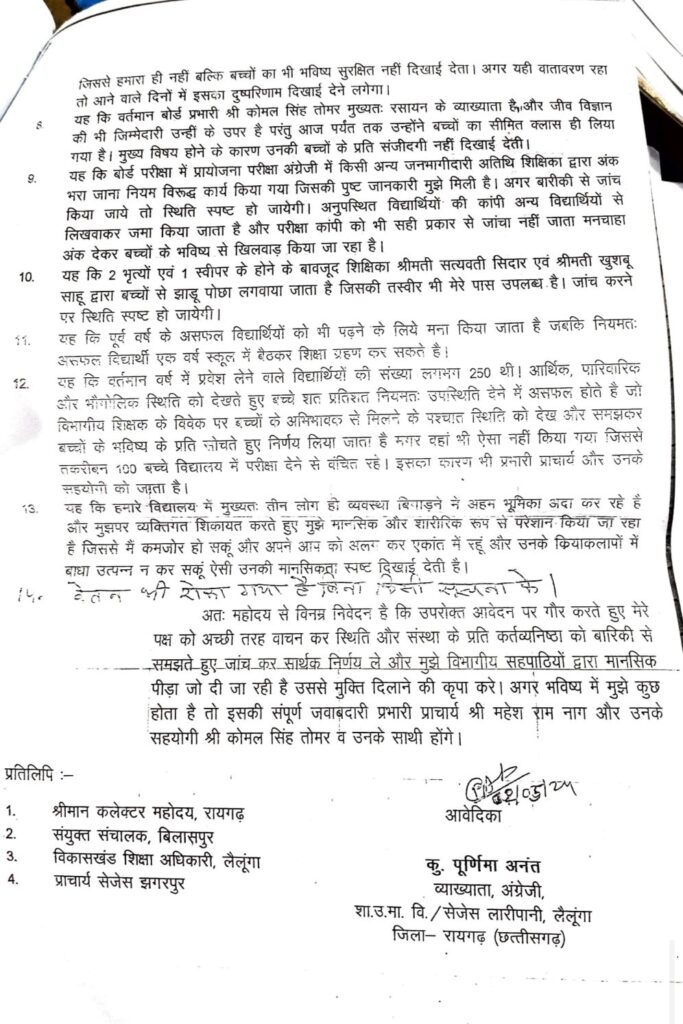 जिससे हमारा ही नहीं बल्कि बच्चों का भी भविष्य सुरक्षित नहीं दिखाई देता। अगर यही वातावरण रहा
तो आने वाले दिनों में इसका दुष्परिणाम दिखाई देने लगेगा।
8. यह कि वर्तमान बोर्ड प्रभारी श्री कोमल सिंह तोमर मुख्यतः रसायन के व्याख्याता है, और जीव विज्ञान
की भी जिम्मेदारी उन्हीं के उपर है परंतु आज पर्यंत तक उन्होंने बच्चों का सीमित क्लास ही लिया
गया है। मुख्य विषय होने के कारण उनकी बच्चों के प्रति संजीदगी नहीं दिखाई देती।
9. यह कि बोर्ड परीक्षा में प्रायोजना परीक्षा अंग्रेजी में किसी अन्य जनभागीदारी अतिथि शिक्षिका द्वारा अंक
भरा जाना नियम विरूद्ध कार्य किया गया जिसकी पुष्ट जानकारी मुझे मिली है। अगर बारीकी से जांच
किया जाये तो स्थिति स्पष्ट हो जायेगी। अनुपस्थित विद्यार्थियों की कांपी अन्य विद्यार्थियों से
लिखवाकर जमा किया जाता है और परीक्षा कांपी को भी सही प्रकार से जांचा नहीं जाता मनचाहा
अंक देकर बच्चों के भविष्य से खिलवाड़ किया जा रहा है।
10. यह कि 2 भृत्यों एवं 1 स्वीपर के होने के बावजूद शिक्षिका श्रीमती सत्यवती सिदार एवं श्रीमती खुशबू
साहू द्वारा बच्चों से झाडू पोछा लगवाया जाता है जिसकी तस्वीर भी मेरे पास उपलब्ध है। जांच करने
पर स्थिति स्पष्ट हो जायेगी।
11. यह कि पूर्व वर्ष के असफल विद्यार्थियों को भी पढ़ने के लिये मना किया जाता है जबकि नियमतः
असफल विद्यार्थी एक वर्ष स्कूल में बैठकर शिक्षा ग्रहण कर सकते है।
12. यह कि वर्तमान वर्ष में प्रवेश लेने वाले विद्यार्थियों की संख्या लगभग 250 थी। आर्थिक, पारिवारिक
और भौगोलिक स्थिति को देखते हुए बच्चे शत प्रतिशत नियमतः उपस्थिति देने में असफल होते है जो
विभागीय शिक्षक के विवेक पर बच्चों के अभिभावक से मिलने के पश्चात स्थिति को देख और समझकर
बच्चों के भविष्य के प्रति सोचते हुए निर्णय लिया जाता है मगर वहां भी ऐसा नहीं किया गया जिससे
तकरीबन 100 बच्चे विद्यालय में परीक्षा देने से वंचित रहे। इसका कारण भी प्रभारी प्राचार्य और उनके
सहयोगी को जाता है।
13. यह कि हमारे विद्यालय में मुख्यतः तीन लोग ही व्यवस्था बिगाड़ने में अहम भूमिका अदा कर रहे है
और मुझपर व्यक्तिगत शिकायत करते हुए मुझे मानसिक और शारीरिक रूप से परेशान किया जा रहा
है जिससे मैं कमजोर हो सकूं और अपने आप को अलग कर एकांत में रहूं और उनके क्रियाकलापों में
बाधा उत्पन्न न कर सकूं ऐसी उनकी मानसिकता स्पष्ट दिखाई देती है।
14. वेतन भी रोका गया है बिना किसी सूचना के।
अतः महोदय से विनम्र निवेदन है कि उपरोक्त आवेदन पर गौर करते हुए मेरे
पक्ष को अच्छी तरह वाचन कर स्थिति और संस्था के प्रति कर्तव्यनिष्ठा को बारिकी से
समझते हुए जांच कर सार्थक निर्णय ले और मुझे विभागीय सहपाठियों द्वारा मानसिक
पीड़ा जो दी जा रही है उससे मुक्ति दिलाने की कृपा करे। अगर भविष्य में मुझे कुछ
होता है तो इसकी संपूर्ण जवाबदारी प्रभारी प्राचार्य श्री महेश राम नाग और उनके
सहयोगी श्री कोमल सिंह तोमर व उनके साथी होंगे।
प्रतिलिपि :–
1. श्रीमान कलेक्टर महोदय, रायगढ़
2. संयुक्त संचालक, बिलासपुर
3. विकासखंड शिक्षा अधिकारी, लैलूंगा
4. प्राचार्य सेजेस झगरपुर
आवेदिका
कु. पूर्णिमा अनंत
व्याख्याता, अंग्रेजी,
शा.उ.मा. वि./सेजेस लारीपानी, लैलूंगा
जिला– रायगढ़ (छत्तीसगढ़)